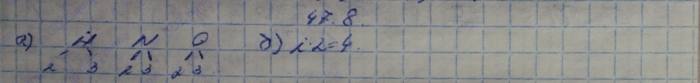 47.8.
а) И N О б) 2·2=4.
2 3 2 3 2 3